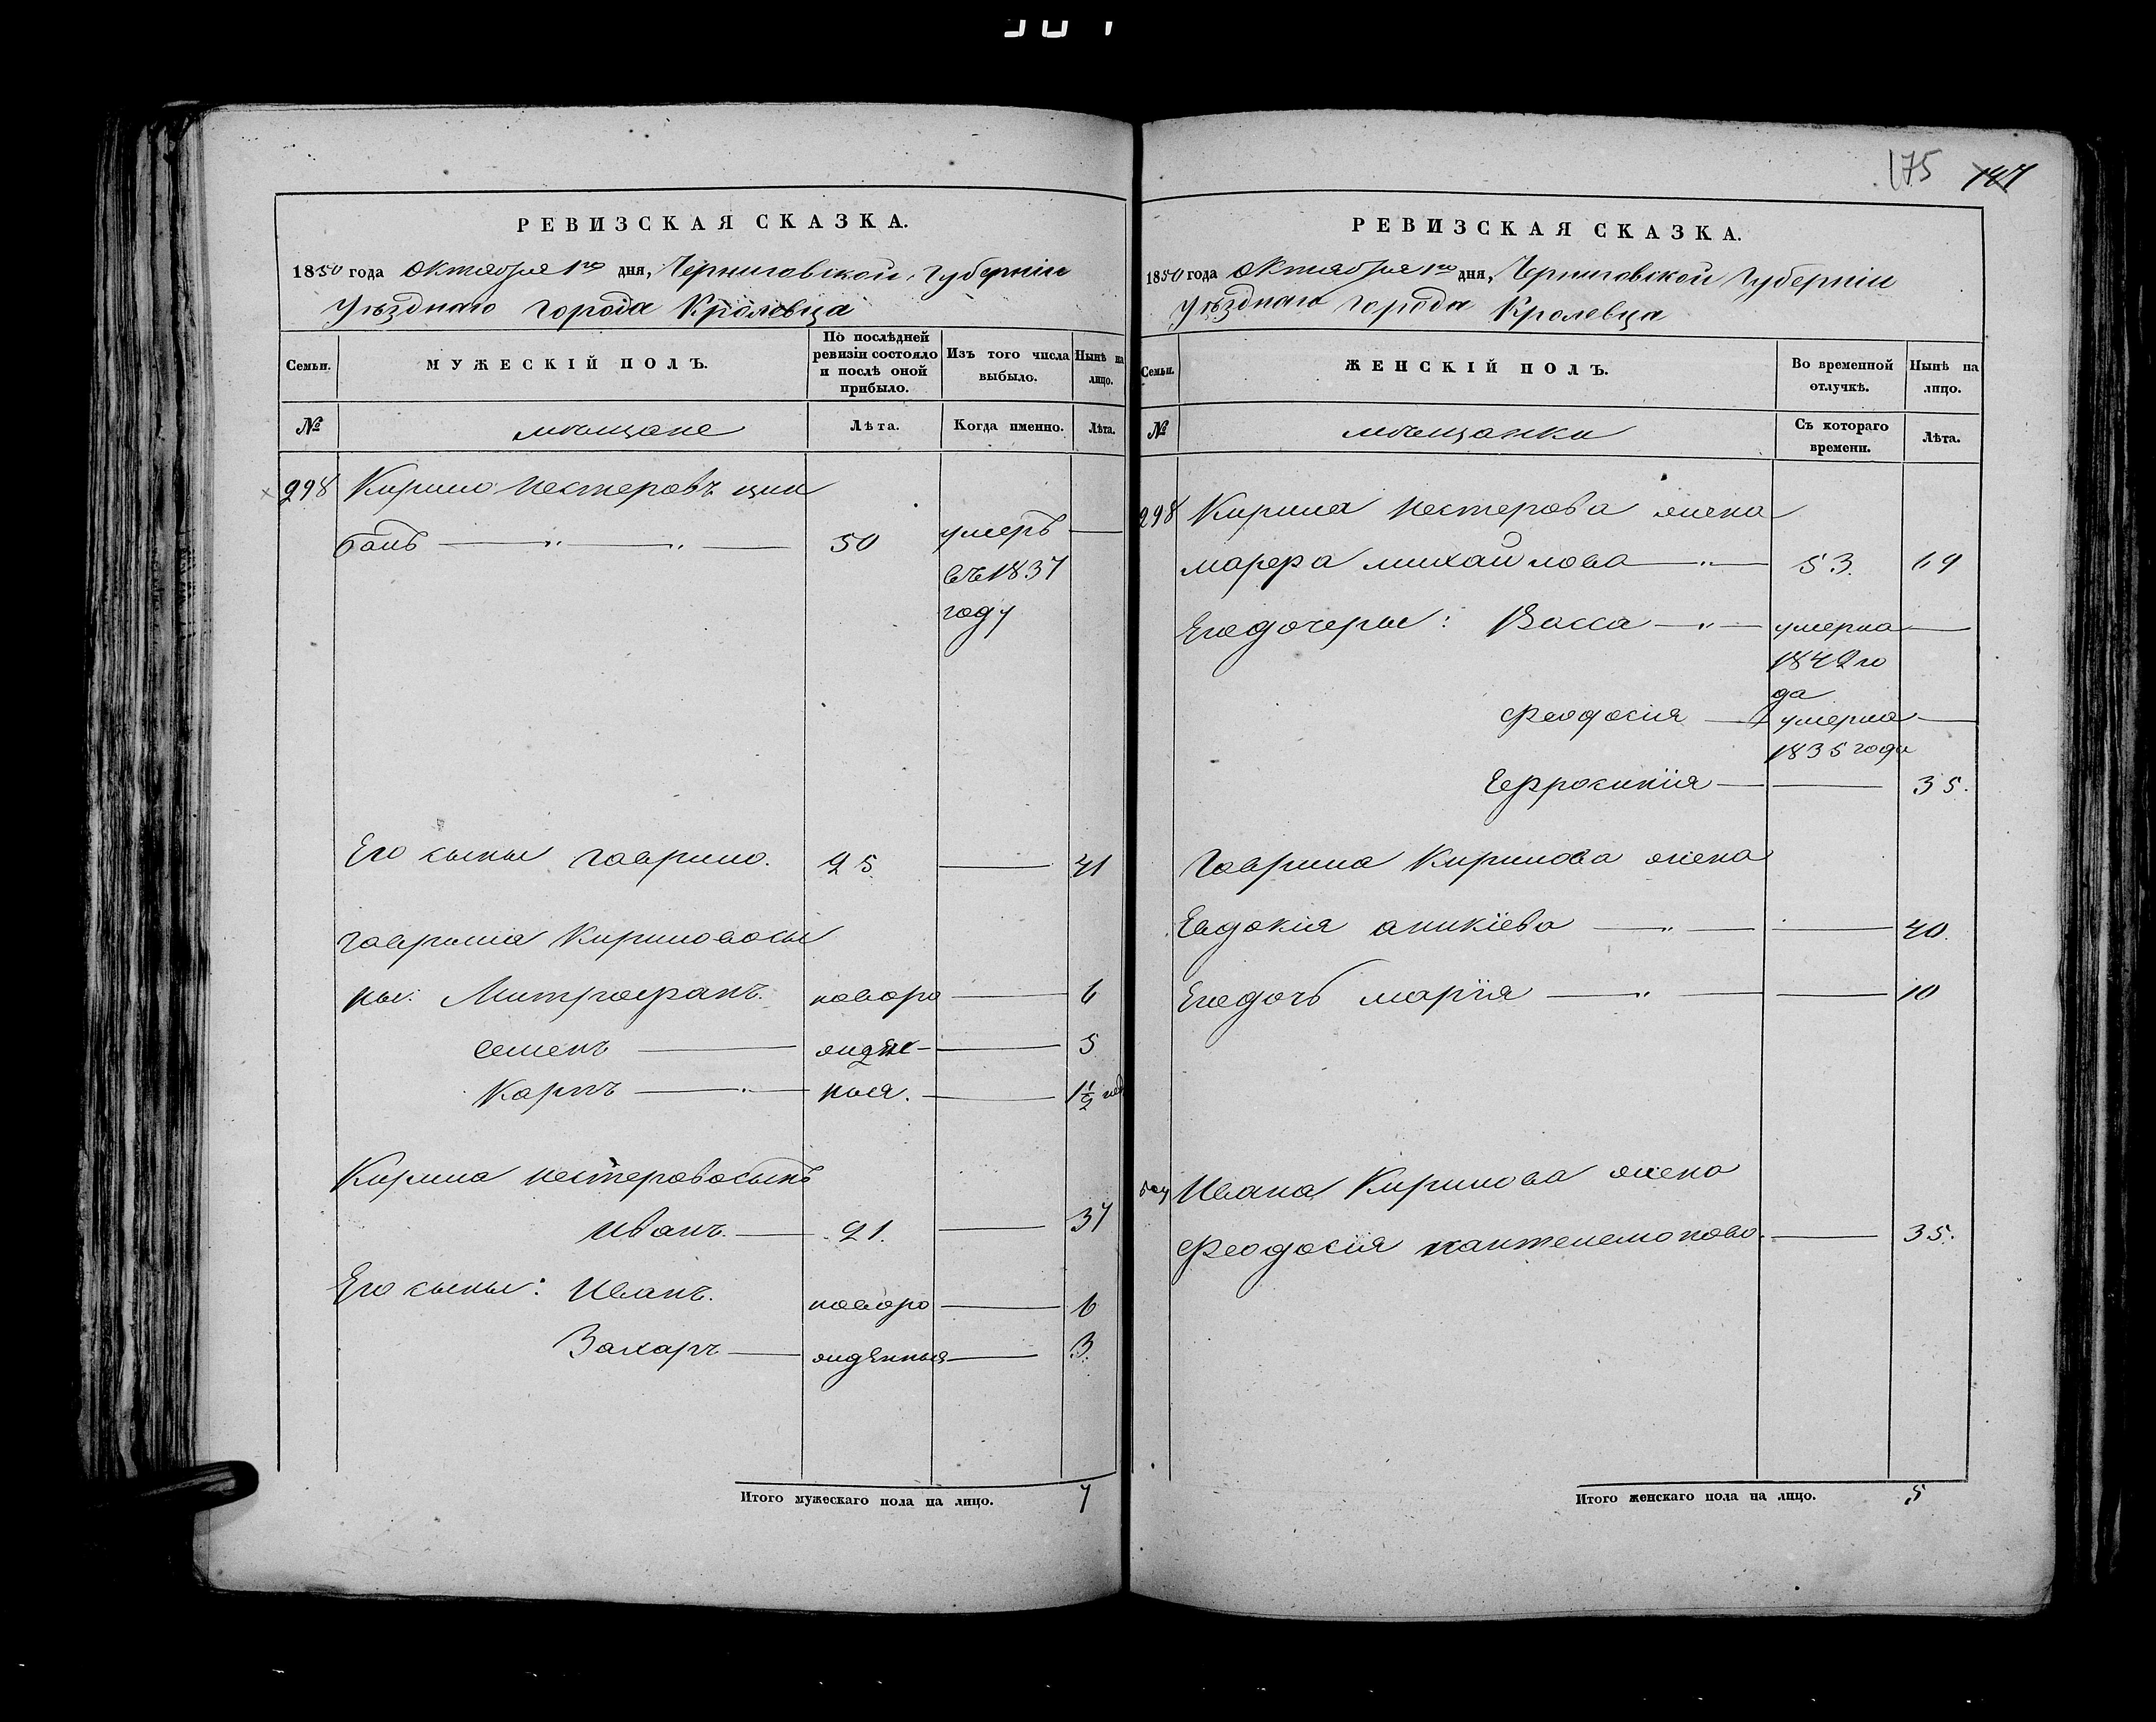 175 147
РЕВИЗСКАЯ СКАЗКА.
1850 года Октября 1го дня, Черниговской Губерніи
Уѣзднаго города Кролевца
Семьи. МУЖЕСКІЙ ПОЛЪ. По послѣдней ревизіи состояло и послѣ оной прибыло. Изъ того числа выбыло. Нынѣ на лицо.
№ мѣщане Лѣта. Когда именно. Лѣта.
298 Кирило Нестеровъ цим
балъ 50 умеръ
въ 1837
году
Его сыны Гаврило. 25 41
Гаврила Кирилова сы
ны: Митрофанъ. новоро 6
Семенъ жден 5
Карпъ ныя. 1½ год
Кирила Нестерова сынъ
Иванъ. 21. 37
Его сыны: Иванъ. новоро 6
Захаръ жденныя 3.
Итого мужескаго пола на лицо. 7
РЕВИЗСКАЯ СКАЗКА.
1850 года Октября 1го дня, Черниговской Губерніи
Уѣзднаго города Кролевца
Семьи. ЖЕНСКІЙ ПОЛЪ. Во временной отлучкѣ. Нынѣ на лицо.
№ мѣщанки Съ котораго времени. Лѣта.
298 Кирила Нестерова жена
Марфа Михайлова 53. 69
Его дочеры: Васса умерла
1842 го
да
Феодосия умерла
1835 года
Ефросинія 35.
Гаврила Кирилова жена
Евдокія Аникіева 40.
Его дочь Марія 10
Ивана Кирилова жена
Феодосія Пантелемонова. 35.
Итого женскаго пола на лицо. 5